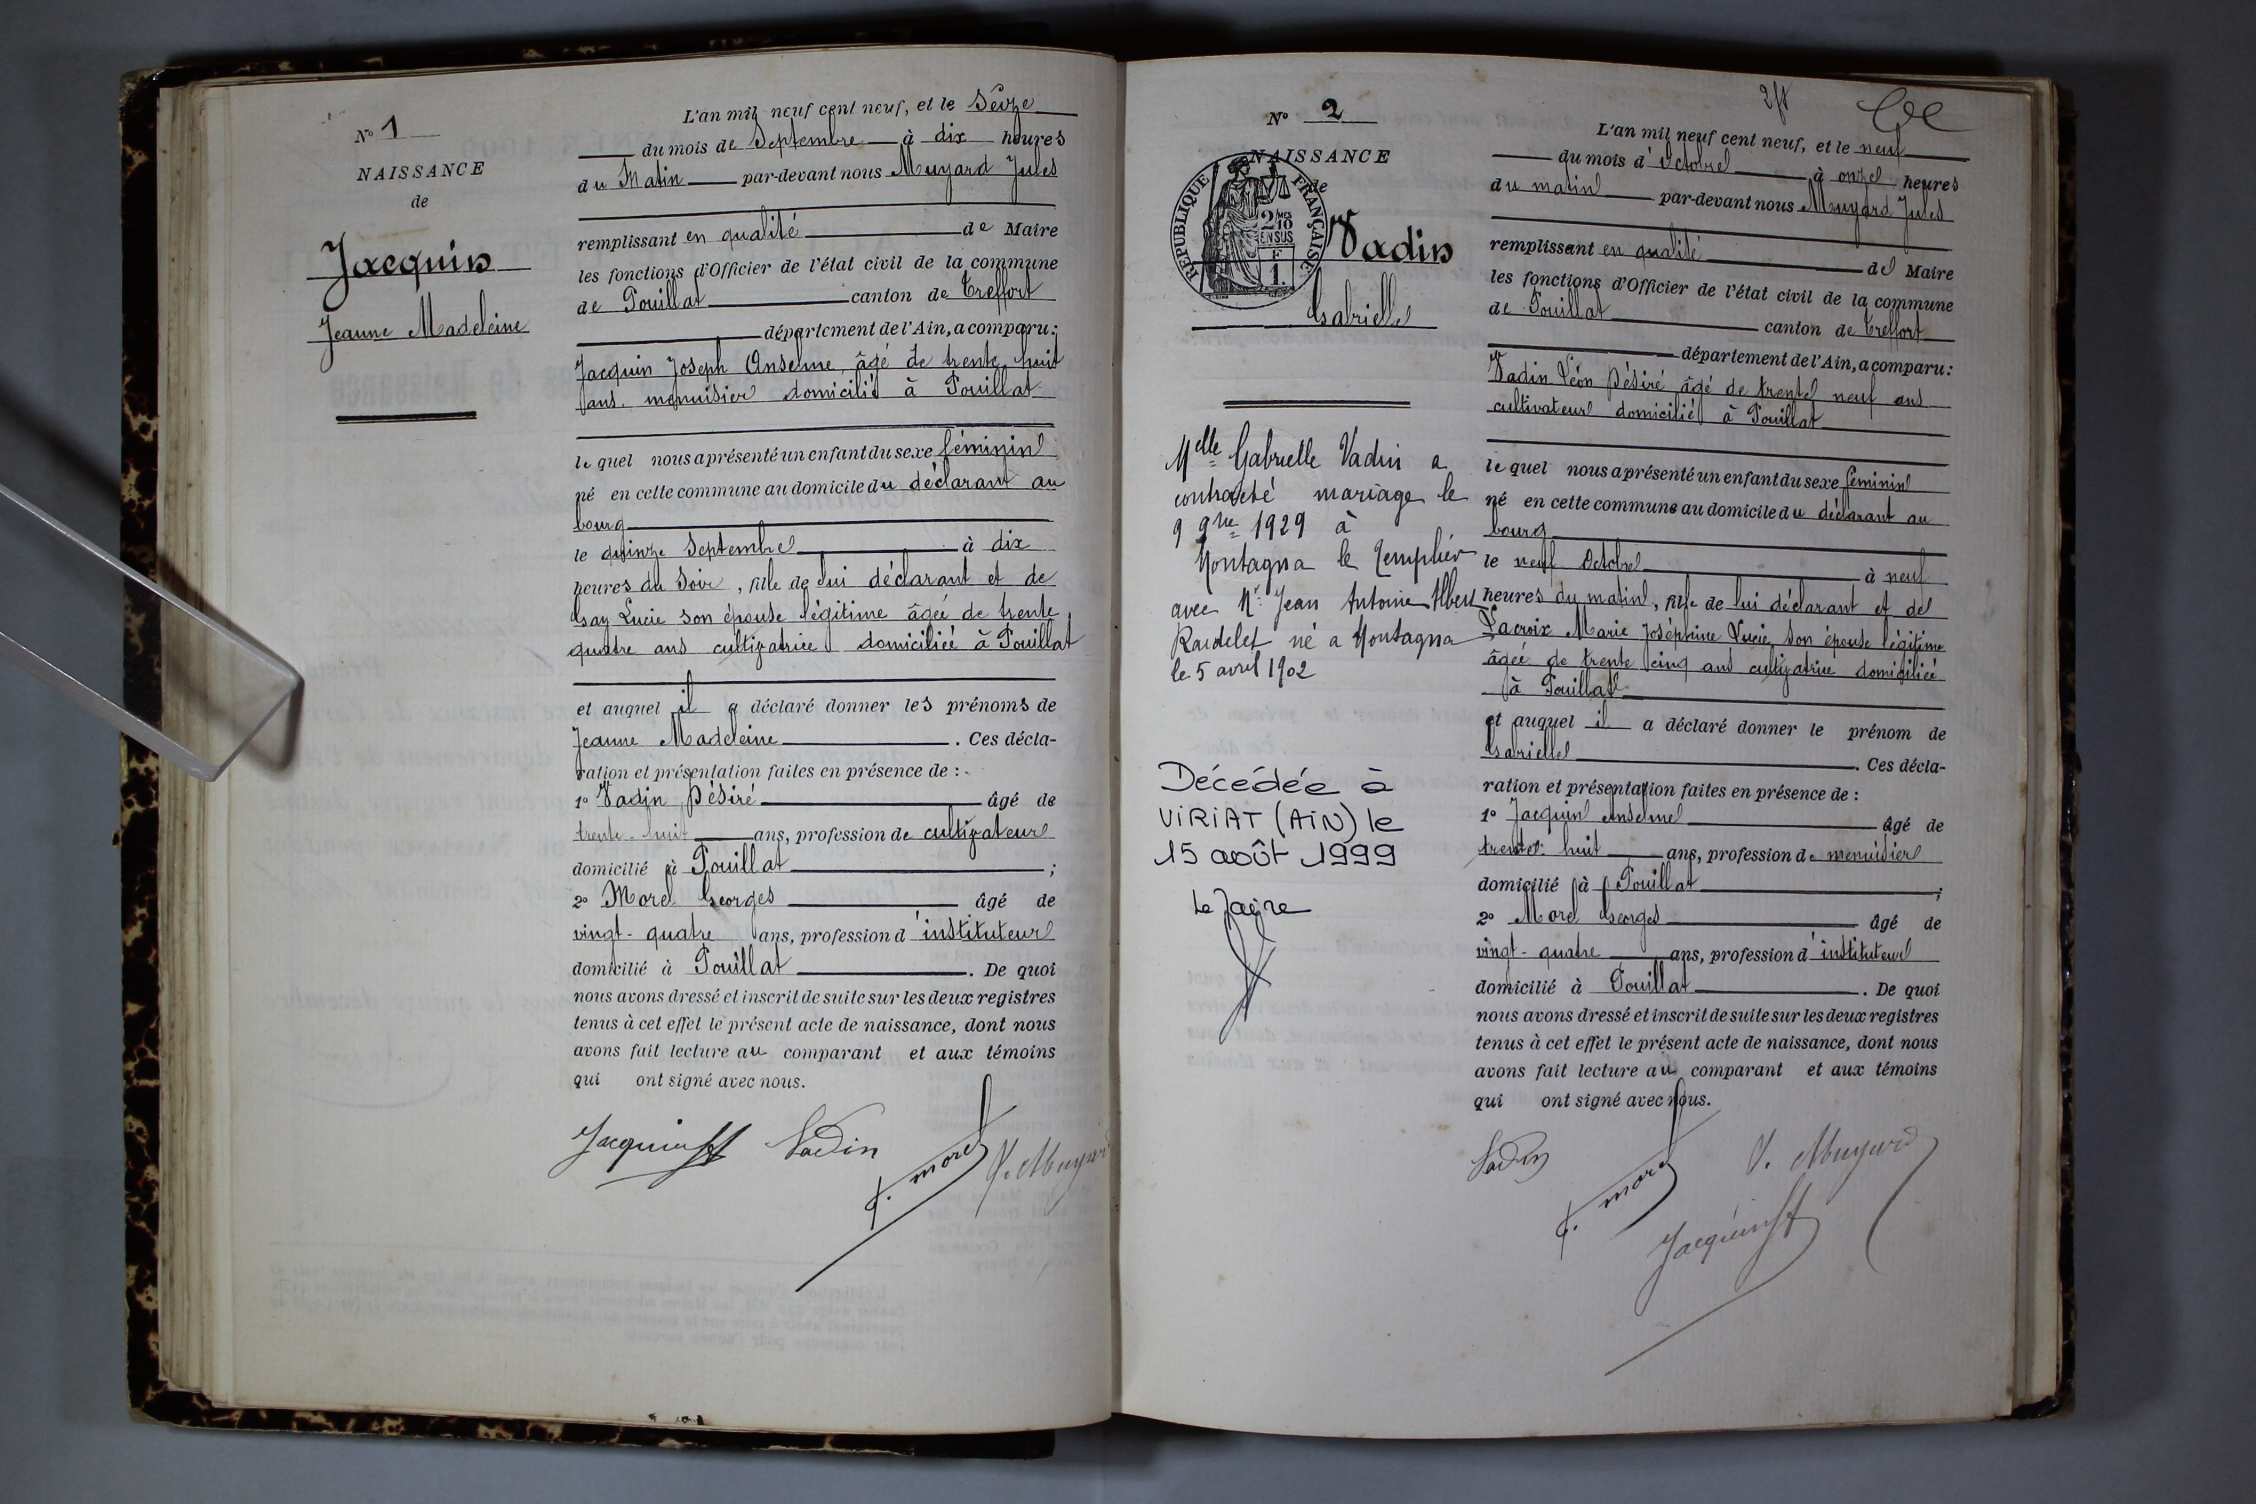 No 1
NAISSANCE
de
Jacquin
Jeanne Madeleine
L'an mil neuf cent neuf, et le Seize
du mois de Septembre à dix heures
du Matin par-devant nous Muyard Jules
remplissant en qualité de Maire
les fonctions d'Officier de l'état civil de la commune
de Pouillat canton de Treffort
département de l'Ain, a comparu :
Jacquin Joseph Anselme, âgé de trente huit
ans menuisier domicilié à Pouillat
le quel nous a présenté un enfant du sexe féminin
né en cette commune au domicile du déclarant au
bourg
le quinze Septembre à dix
heures du Soir, fille de lui déclarant et de
Gay Lucie son épouse légitime âgée de trente
quatre ans cultivatrice domiciliée à Pouillat
et auquel il a déclaré donner les prénoms de
Jeanne Madeleine . Ces décla-
ration et présentation faites en présence de :
1o Vadin Désiré âgé de
trente-huit ans, profession de cultivateur
domicilié à Pouillat ;
2o Morel Georges âgé de
vingt-quatre ans, profession d'instituteur
domicilié à Pouillat . De quoi
nous avons dressé et inscrit de suite sur les deux registres
tenus à cet effet le présent acte de naissance, dont nous
avons fait lecture au comparant et aux témoins
qui ont signé avec nous.
Jacquin Vadin G. Morel J. Muyard
No 2
NAISSANCE
de
RÉPUBLIQUE FRANÇAISE
Vadin
Gabrielle
Melle Gabrielle Vadin a
contracté mariage le
9 9bre 1929 à
Montagna le Templier
avec Mr Jean Antoine Albert
Raidelet né a Montagna
le 5 avril 1902
Décédée à
VIRIAT (AIN) le
15 août 1999
Le Maire
L'an mil neuf cent neuf, et le neuf
du mois d'Octobre à onze heures
du matin par-devant nous Muyard Jules
remplissant en qualité de Maire
les fonctions d'Officier de l'état civil de la commune
de Pouillat canton de Treffort
département de l'Ain, a comparu :
Vadin Léon Désiré âgé de trente neuf ans
cultivateur domicilié à Pouillat
le quel nous a présenté un enfant du sexe féminin
né en cette commune au domicile du déclarant au
bourg
le neuf Octobre à neuf
heures du matin, fille de lui déclarant et de
Lacroix Marie Joséphine Lucie, son épouse légitime
âgée de trente cinq ans cultivatrice domiciliée
à Pouillat
et auquel il a déclaré donner le prénom de
Gabrielle . Ces décla-
ration et présentation faites en présence de :
1o Jacquin Anselme âgé de
trente-huit ans, profession de menuisier
domicilié à Pouillat ;
2o Morel Georges âgé de
vingt-quatre ans, profession d'instituteur
domicilié à Pouillat . De quoi
nous avons dressé et inscrit de suite sur les deux registres
tenus à cet effet le présent acte de naissance, dont nous
avons fait lecture au comparant et aux témoins
qui ont signé avec nous.
Vadin G. Morel J. Muyard
Jacquin